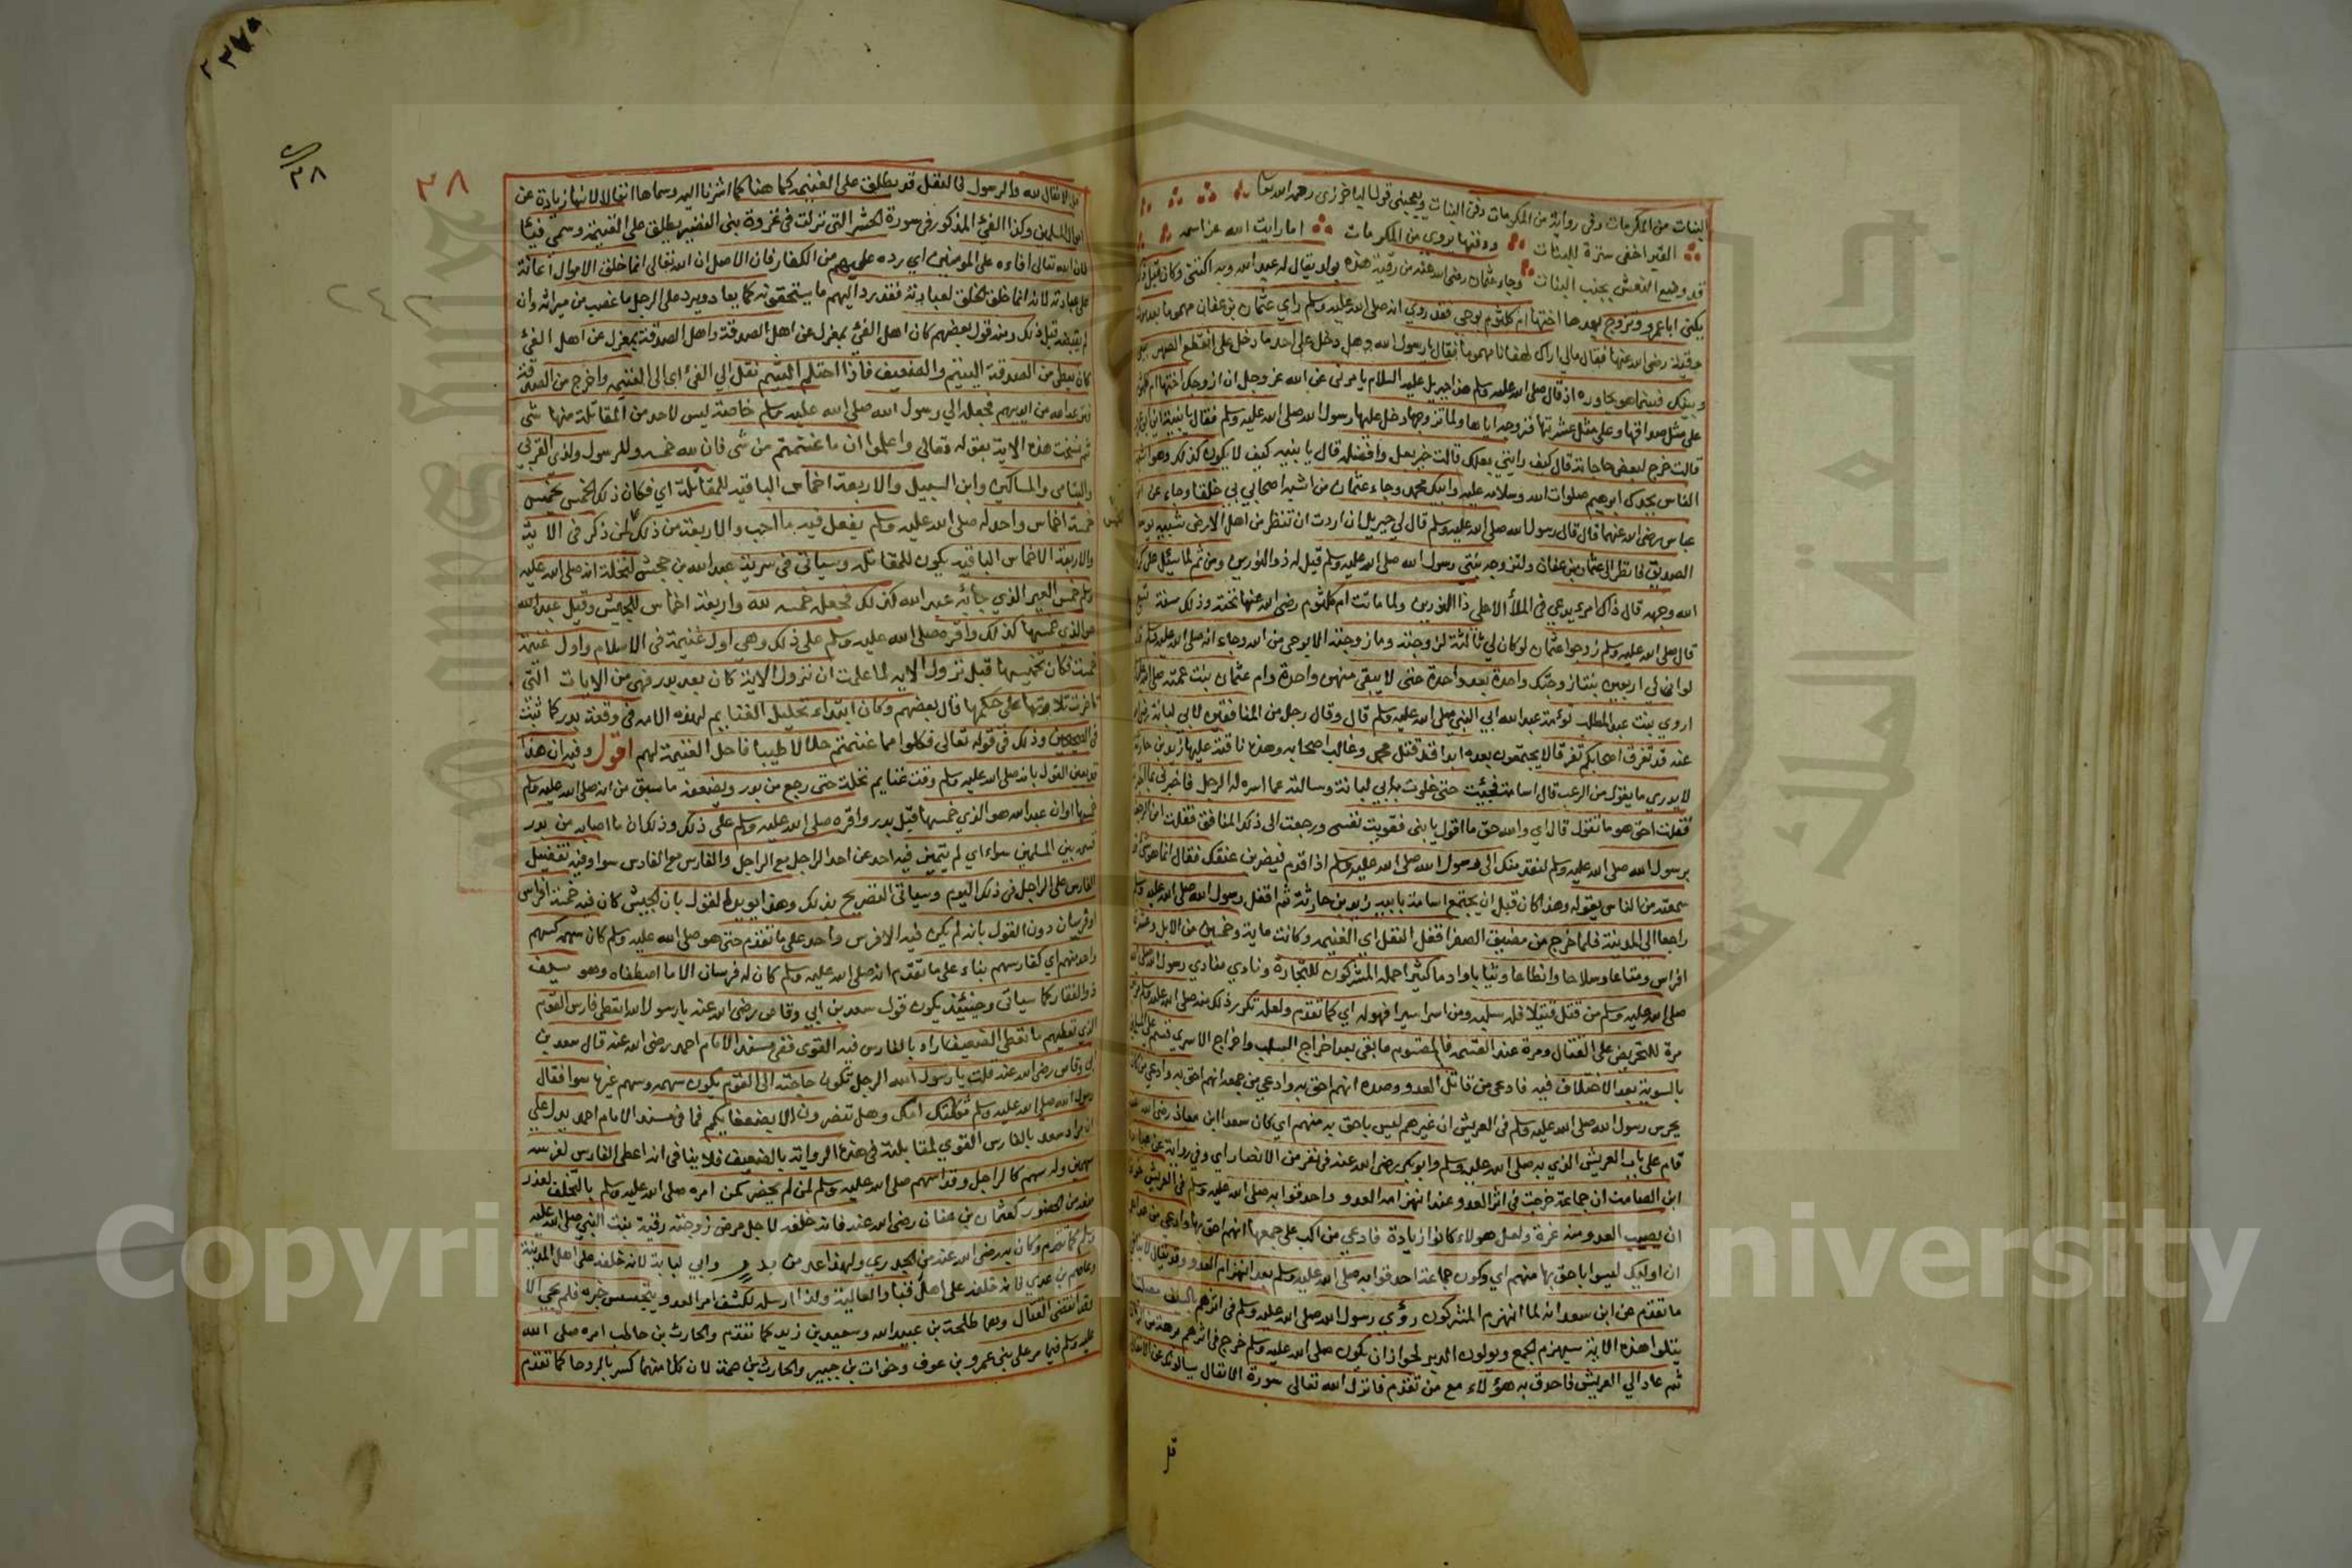 البنات من المكرمات وفى رواية من المكرمات دفن البنات ويعجبنى قول الباخرزى رحمه الله تعا
القبر اخفى سترة للبنات ودفنها يروى من المكرمات اما رايت الله عز اسمه
قد وضع النعش بجنب البنات وجاء عثمان رضى الله عنه من رقية هذه بولد يقال له عبد الله وبه اكتنى وكان قبل ذلك
يكنى ابا عمرو وتزوج بعدها اختها ام كلثوم بوحى فقد روي انه صلى الله عليه وسلم راي عثمان بن عفان مهموما بعد موت
رقية رضى الله عنها فقال مالي اراك لهفانا مهموما فقال يا رسول الله وهل دخل على احد ما دخل على انقطع الصهر بينى
وبينك فبينما هو يحاوره اذ قال صلى الله عليه وسلم هذا جبريل عليه السلام يامرنى عن الله عز وجل ان ازوجك اختها ام كلثوم
على مثل صداقها وعلى مثل عشرتها فزوجه اياها ولما تزوجها دخل عليها رسول الله صلى الله عليه وسلم فقال يا بنية اين ابو عمرو
قالت خرج لبعض حاجاته قال كيف رايتي بعلك قالت خير بعل وافضله قال يا بنيه كيف لا يكون كذلك وهو اشبه
الناس بجدك ابرهيم صلوات الله وسلامه عليه وابيك محمد وجاء عثمان من اشبه اصحابي بي خلقا وجاء عن ابن
عباس رضى الله عنهما قال قال رسول الله صلى الله عليه وسلم قال لي جبريل ان اردت ان تنظر من اهل الارض شبيه يوسف
الصديق فانظر الى عثمان بن عفان ولتزوجه بنتى رسول الله صلى الله عليه وسلم قيل له ذو النورين ومن ثم لما سئل على كرم
الله وجهه قال ذاك امرء يدعى فى الملأ الاعلى ذا النورين ولما ماتت ام كلثوم رضى الله عنها تحته وذلك سنة تسع
قال صلى الله عليه وسلم زوجوا عثمان لو كان لي ثالثة لزوجته وما زوجته الا بوحى من الله وجاء انه صلى الله عليه وسلم قال
لو ان لي اربعين بنتا زوجتك واحدة بعد واحدة حتى لا يبقى منهن واحدة وام عثمان بنت عمته صلى الله عليه وسلم
اروي بنت عبد المطلب توئمة عبد الله ابي النبي صلى الله عليه وسلم قال وقال رجل من المنافقين لابي لبابة رضى الله
عنه قد تفرق اصحابكم تفرقا لا يجتمعون بعده ابدا قد قتل محمد وغالب اصحابه وهذه ناقته عليها زيد بن حارثة
لا يدري ما يقول من الرعب قال اسامة فجئت حتى خلوت بابي لبابة وسالته عما اسره له الرجل فاخبرنى بما اخبره
فقلت احق هو ما تقول قال اي والله حق ما اقول يا بنى فقويت نفسى ورجعت الى ذلك المنافق فقلت انت المرجف
برسول الله صلى الله عليه وسلم لنقدمنك الى رسول الله صلى الله عليه وسلم اذا قدم فيضربن عنقك فقال انما هو شئ
سمعته من الناس يقوله وهذا كان قبل ان يجتمع اسامة بابيه زيد بن حارثة ثم اقفل رسول الله صلى الله عليه وسلم
راجعا الى المدينة فلما خرج من مضيق الصفرا قفل النفل اي الغنيمه وكانت ماية وخمسين من الابل وعشرة
افراس ومتاعا وسلاحا وانطاعا وثيابا وادما كثيرا حمله المشركون للتجارة ونادي منادي رسول الله صلى الله
صلى الله عليه وسلم من قتل قتيلا فله سلبه ومن اسر اسيرا فهو له اي كما تقدم ولعله تكرر ذلك منه صلى الله عليه وسلم مرة
مرة للتحريض على القتال ومرة عند القسمه فالمقسوم ما بقى بعد اخراج السلب واخراج الاسري قسم على السوا
بالسوية بعد الاختلاف فيه فادعى من قاتل العدو وصده انهم احق به وادعى من جمعه انهم احق به وادعى من كان
يحرس رسول الله صلى الله عليه وسلم فى العريش ان غيرهم ليس باحق به منهم اي كان سعد ابن معاذ رضى الله عنه
قام على باب العريش الذي به صلى الله عليه وسلم وابو بكر رضى الله عنه فى نفر من الانصار اي وفي رواية عن عبادة
ابن الصامت ان جماعة خرجت فى اثر العدو عند انهزامه العدو واحدقوا به صلى الله عليه وسلم فى العريش خوف
ان يصيب العدو منه غرة ولعل هولاء كانوا زيادة فادعى من اكب على جمعها انهم احق بها وادعى
ان اوليك ليسوا باحق بها منهم اي وكون جماعة احدقوا به صلى الله عليه وسلم بعد انهزام العدو وقد يقال لا ينافي
ما تقدم عن ابن سعد انه لما انهزم المشركون رؤي رسول الله صلى الله عليه وسلم فى اثرهم بالسيف مصلتا
يتلوا هذه الاية سيهزم الجمع ويولون الدبر لجواز ان يكون صلى الله عليه وسلم خرج فى اثرهم برهة من زمان
ثم عاد الي العريش فاحدق به هؤلاء مع من تقدم فانزل الله تعالى سورة الانفال يسالونك عن الانفال
قل
٣٧٥
٣٨
٣٨
٢٤٢
قل الانفال لله والرسول فالنفل قد يطلق على الغنيمه كما هنا كما اشرنا اليه وسماها انفالا لانها زيادة عن
اموال المسلمين وكذا الفئ المذكور فى سورة الحشر التى نزلت فى غزوة بنى النضير يطلق على الغنيمة وسمى فيئا
لان الله تعالى افاءه على المومنين اي رده عليهم من الكفار فان الاصل ان الله تعالى انما خلق الاموال اعانة
على عبادته لانه انما خلق الخلق لعبادته فقد رد اليهم ما يستحقونه كما يعاد ويرد على الرجل ما غصب من ميراثه وان
لم يقبضه قبل ذلك ومنه قول بعضهم كان اهل الفئ بمعزل عن اهل الصدقة واهل الصدقة بمعزل عن اهل الفئ
كان يعطى من الصدقة اليتيم والضعيف فاذا احتلم اليتيم نقل الى الفئ اي الى الغنيمه واخرج من الصدقة
فنزعه الله من ايديهم فجعله الي رسول الله صلى الله عليه وسلم خاصة ليس لاحد من المقاتلة منها شى
ثم نسخت هذه الاية بقوله تعالى واعلموا ان ما غنمتم من شى فان لله خمسه وللرسول ولذى القربى
واليتامى والمساكين وابن السبيل والاربعة اخماس الباقيه للمقاتلة اي فكان ذلك الخمس يخمس
خمسة اخماس واحد له صلى الله عليه وسلم يفعل فيه ما احب والاربعة من ذلك لمن ذكر فى الاية
والاربعة الاخماس الباقيه يكون للمقاتله وسياتى فى سرية عبد الله بن جحش لنخلة انه صلى الله عليه
وسلم خمس العير الذي جائه عبد الله كذلك فجعل خمسه لله واربعة اخماس للجيش وقيل عبد الله
هو الذي خمسها كذلك واقره صلى الله عليه وسلم على ذلك وهي اول غنيمة فى الاسلام واول غنيمة
خمست فكان تخميسها قبل نزول الايه لما علمت ان نزول الاية كان بعد بدر فهى من الايات التى
تاخرت تلاوتها على حكمها قال بعضهم وكان ابتداء تحليل الغنايم لهذه الامه فى وقعة بدر كما ثبت
فى الصحيحين وذلك فى قوله تعالى فكلوا مما غنمتم حلالا طيبا فاحل الغنيمة لهم اقول وفيه ان هذا
قد يعين القول بانه صلى الله عليه وسلم وقف غنايم نخلة حتى رجع من بدر ويضعفه ما سبق من انه صلى الله عليه وسلم
خمسها او ان عبد الله هو الذي خمسها قبل بدر واقره صلى الله عليه وسلم على ذلك وذلك ان ما اصابه من بدر
قسمه بين المسلمين سواء اي لم يتميز فيه احد عن احد الراجل مع الراجل والفارس مع الفارس سوا وفيه تفضيل
الفارس على الراجل فى ذلك اليوم وسياتى التصريح بذلك وهذا يويد القول بان الجيش كان فيه خمسة افراس
او فرسان دون القول بانه لم يكن فيه الا فرس واحد على ما تقدم حتى هو صلى الله عليه وسلم كان سهمه كسهم
واحد منهم اي كفارسهم بناء على ما تقدم انه صلى الله عليه وسلم كان له فرسان الا ما اصطفاه وهو سيف
ذو الفقار كما سياتى وحينئذ يكون قول سعد بن ابى وقاص رضى الله عنه يا رسول الله اتعطى فارس القوم
الذي تعطيهم ما تعطى الضعيف اراد بالفارس فيه القوي ففى مسند الامام احمد رضى الله عنه قال سعد بن
ابى وقاص رضى الله عنه قلت يا رسول الله الرجل تكون حاجته الى القوم يكون سهمه وسهم غيرها سوا فقال
رسول الله صلى الله عليه وسلم ثكلتك امك وهل تنصرون الا بضعفايكم فما فى مسند الامام احمد يدل على
ان مراد سعد بالفارس القوي لمقابلته فى هذه الرواية بالضعيف فلا ينافى انه اعطى الفارس لفرسه
سهمين وله سهم كالراجل وقد اسهم صلى الله عليه وسلم لمن لم يحضر كمن امره صلى الله عليه وسلم بالتخلف لعذر
منعه من الحضور كعثمان بن عفان رضى الله عنه فانه خلفه لاجل مرض زوجته رقية بنت النبي صلى الله عليه
وسلم كما تقدم وكان به رضى الله عنه من الجدري ولهذا عد من بدر وابي لبابة لانه خلفه على اهل المدينة
وعاصم بن عدي فانه خلفه على اهل قبا والعالية ولمن ارسله لكشف امر العدو يتجسس خبره فلم يجى الا
بعد انقضى القتال وهما طلحة بن عبيد الله وسعيد بن زيد كما تقدم والحارث بن حاطب امره صلى الله
عليه وسلم فيما مر على بني عمرو بن عوف وخوات بن جبير والحارث بن صمة لان كلا منهما كسر بالروحا كما تقدم
جامعة الملك سعود
King Saud University
Copyright © King Saud University